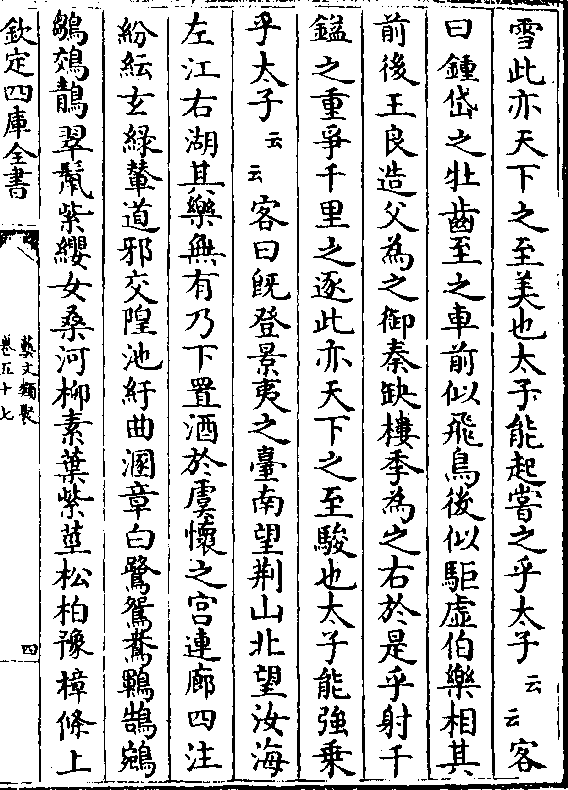 雪此亦天下之至美也太子能起嘗之乎太子云云客
曰鍾岱之牡齒至之車前似飛鳥後似駏虛伯樂相其
前後王良造父為之御秦缺樓季為之右於是乎射千
鎰之重爭千里之逐此亦天下之至駿也太子能強乗
乎太子云云客曰既登景夷之臺南望荆山北望汝海
左江右湖其樂無有乃下置酒於虞懷之宫連廊四注
紛紜玄綠輦道邪交隍池紆曲溷章白鷺鴛鴦鸜鵠鵷
鶵鵁鶄翠鬛紫纓女桑河柳素葉紫莖松柏豫樟條上
欽定四庫全書
藝文類聚
卷五十七
四